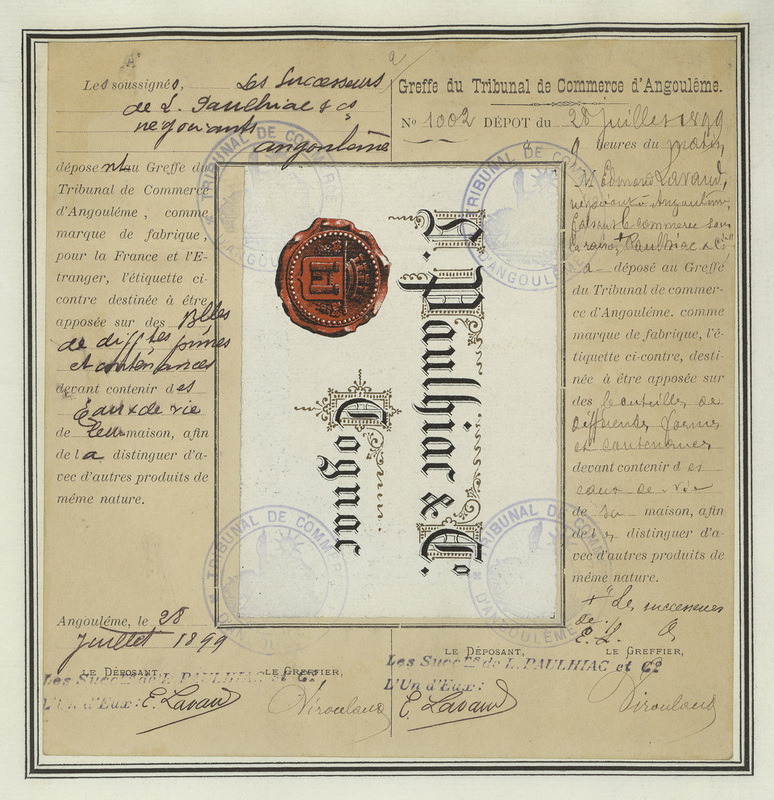 Les soussignés, Les Successeurs
de L. Paulhiac & Cie
négociants
angoulême
déposent au Greffe du
Tribunal de Commerce
d'Angoulême, comme
marque de fabrique,
pour la France et l'E-
tranger, l'étiquette ci-
contre destinée à être
apposée sur des Blles
de difftes formes
et contenances
devant contenir des
Eaux de vie
de leur maison, afin
de la distinguer d'a-
vec d'autres produits de
même nature.
Angoulême, le 28
Juillet 1899
LE DÉPOSANT, LE GREFFIER,
Les Succrs de L. PAULHIAC et Co
L'Un d'Eux: E. Lavaud
Greffe du Tribunal de Commerce d'Angoulême.
No 1002 DÉPOT du 28 Juillet 1899
9 heures du matin,
M. Edmond Lavaud,
négociant à Angoulême,
faisant le commerce sous
la raison + Paulhiac & Cie
a déposé au Greffe
du Tribunal de commer-
ce d'Angoulême. comme
marque de fabrique, l'é-
tiquette ci-contre, desti-
née à être apposée sur
des bouteilles de
différentes formes
et contenances
devant contenir des
eaux-de-vie
de sa maison, afin
de la distinguer d'a-
vec d'autres produits de
même nature.
+ "Les successeurs
de
LE DÉPOSANT, LE GREFFIER,
Les Succrs de L. PAULHIAC et Co
L'Un d'Eux:
E. Lavaud
L. Paulhiac & Co.
Cognac
TRIBUNAL DE COMMERCE
D'ANGOULÊME
TRIBUNAL DE COMMERCE
D'ANGOULÊME
TRIBUNAL DE COMMERCE
D'ANGOULÊME
TRIBUNAL DE COMMERCE
D'ANGOULÊME